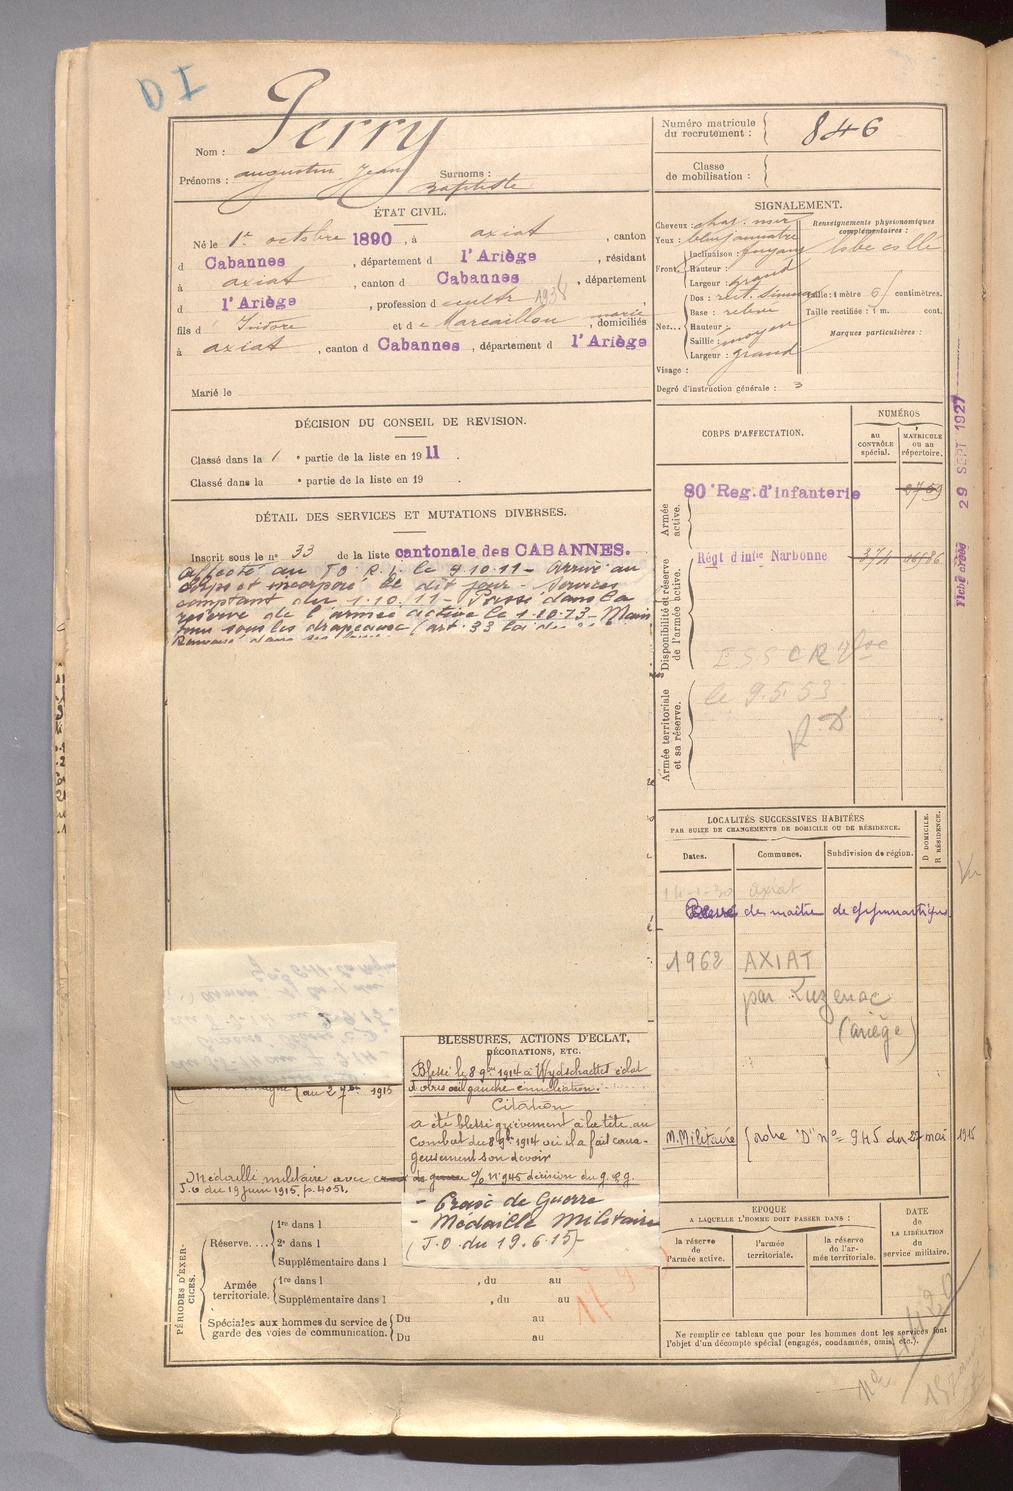 D I
Perry
Nom :
Prénoms : augustin Jean Surnoms : Baptiste
Numéro matricule du recrutement : 846
Classe de mobilisation :
ÉTAT CIVIL.
Né le 1er octobre 1890, à axiat, canton
d Cabannes, département d l'Ariège, résidant
à axiat, canton d Cabannes, département
d l'Ariège, profession d cultr 1938
fils d' Isidore et de Marcaillou marie, domiciliés
à axiat, canton d Cabannes, département d l'Ariège
Marié le
SIGNALEMENT.
Cheveux : chat. noir
Yeux : bleu jaunâtre
Front. Inclinaison : fuyant
Hauteur :
Largeur : grand
Nez... Dos : rect. sinueux
Base : relevé
Hauteur :
Saillie : moyen
Largeur : grand
Visage :
Degré d'instruction générale : 3
Renseignements physionomiques complémentaires :
Taille : 1 mètre 61 centimètres.
Taille rectifiée : 1 m. cent.
Marques particulières :
DÉCISION DU CONSEIL DE REVISION.
Classé dans la 1 e partie de la liste en 1911.
Classé dans la e partie de la liste en 19 .
CORPS D'AFFECTATION.
NUMÉROS
au CONTRÔLE spécial.
MATRICULE ou au répertoire.
Armée active.
80e Reg. d'infanterie
Disponibilité et réserve de l'armée active.
Régt d'infie Narbonne 374
Armée territoriale et sa réserve.
le 9.5.53
Fiche créée 29 SEPT 1927
DÉTAIL DES SERVICES ET MUTATIONS DIVERSES.
Inscrit sous le n° 33 de la liste cantonale des CABANNES.
Affecté au 80 R.I. le 9.10.11 - Arrivé au
corps et incorporé le dit jour - Services
comptant du 1.10.11 - Passé dans la
réserve de l'armée active le 1.10.13 - Main
tenu sous les drapeaux (art. 33 loi du
LOCALITÉS SUCCESSIVES HABITÉES
PAR SUITE DE CHANGEMENTS DE DOMICILE OU DE RÉSIDENCE.
Dates. Communes. Subdivision de région. D DOMICILE. R RÉSIDENCE.
14-1-30 axiat
de maître de gymnastique.
Vu
1962 AXIAT
par Luzenac
(ariège)
M. Militaire (ordre "D" n° 945 du 27 mai 1915
au 2 7bre 1915
Médaille militaire avec croix de guerre o/o n° 945 décision du g.q.g.
J.O du 19 juin 1915. p. 4051.
BLESSURES, ACTIONS D'ECLAT,
DÉCORATIONS, ETC.
Blessé le 8 9bre 1914 à Wydschaette éclat
d'obus œil gauche énucléation.
Citation
a été blessé grièvement à la tête au
Combat du 8 9bre 1914 où il a fait coura-
geusement son devoir
- Croix de Guerre
- Médaille Militaire
(J.O. du 19.6.15) -
PÉRIODES D'EXERCICES.
Réserve.... 1re dans l
2e dans l
Supplémentaire dans l
Armée territoriale. 1re dans l , du au
Supplémentaire dans l , du au
Spéciales aux hommes du service de garde des voies de communication. Du au
Du au
EPOQUE
A LAQUELLE L'HOMME DOIT PASSER DANS :
la réserve de l'armée active.
l'armée territoriale.
la réserve de l'armée territoriale.
DATE DE LA LIBÉRATION du service militaire.
Ne remplir ce tableau que pour les hommes dont les services font
l'objet d'un décompte spécial (engagés, condamnés, omis, etc.).